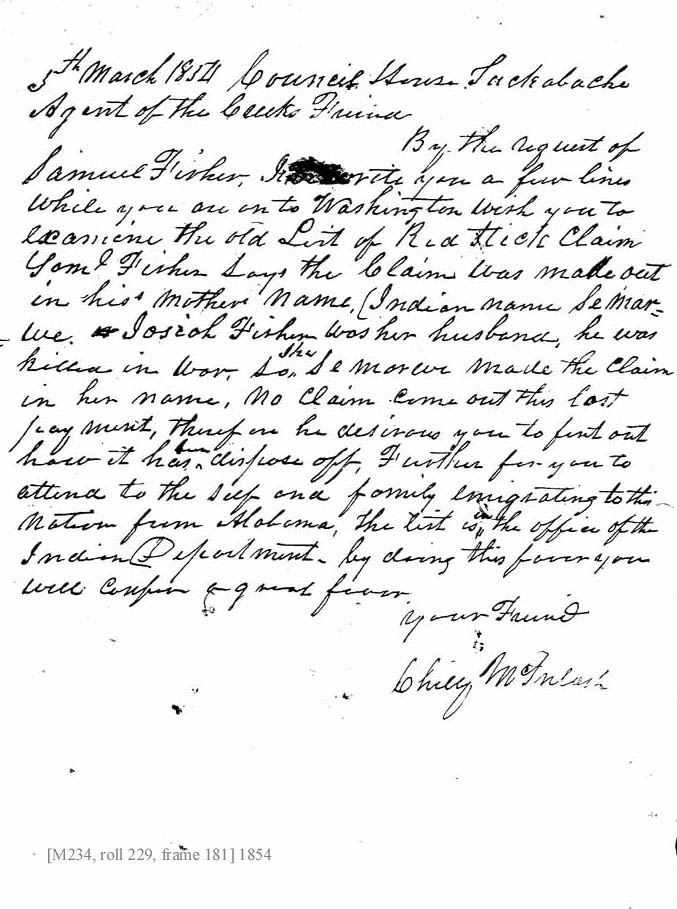 5th March 1854 Council House Tuckabache
Agent of the Creeks Friend
By the request of
Samuel Fisher, I write you a few lines
while you are on to Washington wish you to
examine the old List of Red Stick Claim
Saml Fisher Says the Claim was made out
in his Mothers Name, (Indian name Semar=
we. Josiah Fisher was her husband, he was
killed in War, So She Semarwe made the Claim
in her name, No Claim come out this last
payment, therefore he desirous you to find out
how it has been dispose off, Further for you to
attend to the self and family emigrating to this
Nation from Alabama, the list is in the office of the
Indian Department - by doing this favor you
will confer a great favor
your Friend
Chilly McIntosh
[M234, roll 229, frame 181] 1854